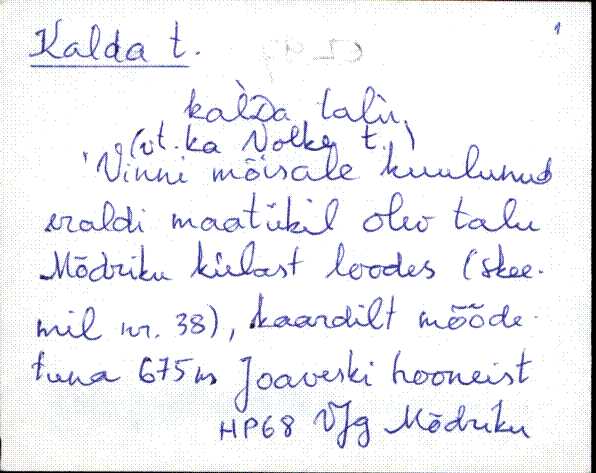 1
Kalda t.
kal̀Da talù.
(vt. ka Nolke t.)
'Vinni mõisale kuulunud
eraldi maatükil olev talu
Mõdriku külast loodes (skee-
mil nr. 38), kaardilt mõõde-
tuna 675m Joaveski hooneist
HP68 VJg Mõdriku